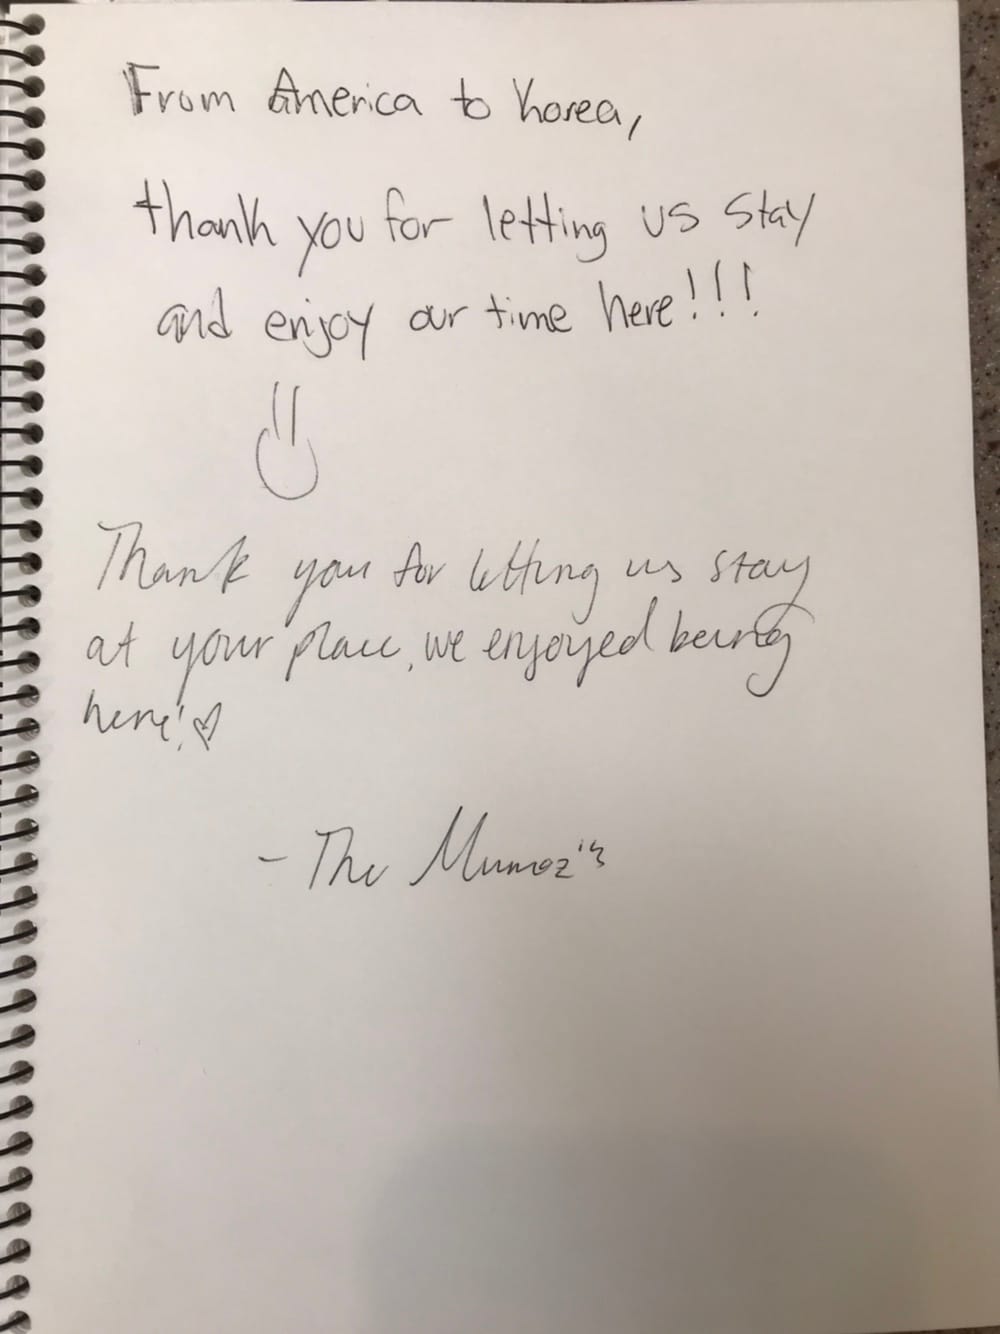 From America to Korea,
thank you for letting us stay
and enjoy our time here!!!
Thank you for letting us stay
at your place, we enjoyed being
here! ♡
- The Munoz's